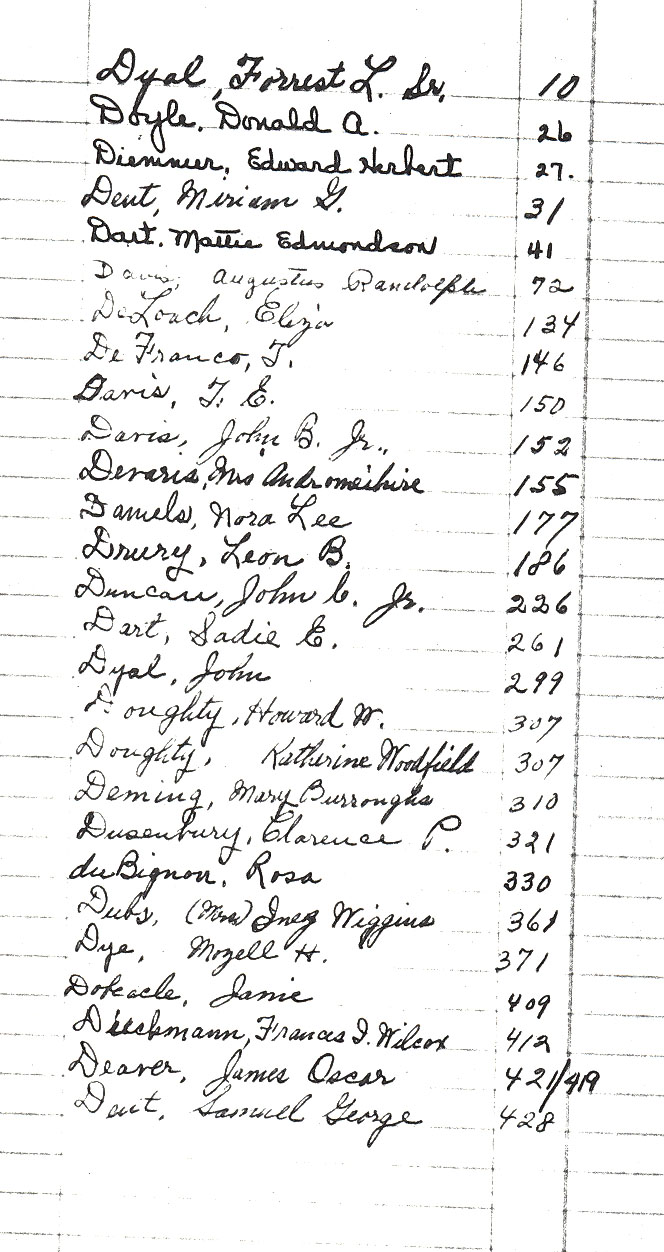 Dyal, Forrest L. Sr. 10
Doyle, Donald A. 26
Diemmer, Edward Herbert 27.
Dent, Miriam G. 31
Dart, Mattie Edmondson 41
Davis, Augustus Randolph 72
DeLoach, Eliza 134
De Franco, T. 146
Davis, T. E. 150
Davis, John B. Jr., 152
Devaris, Mrs 155
Daniels, Nora Lee 177
Drury, Leon B. 186
Duncan, John C. Jr. 226
Dart, Sadie E. 261
Dyal, John 299
Doughty, Howard W. 307
Doughty, Katherine Woodfield 307
Deming, Mary Burroughs 310
Dusenbury, Clarence P. 321
du Bignon, Rosa 330
Dubs, (Mrs) Inez Wiggins 361
Dye, Mozell H. 371
Janie 409
Dieckmann, Francis I. Wilcox 412
Deaver, James Oscar 421/419
Dart, Samuel George 428